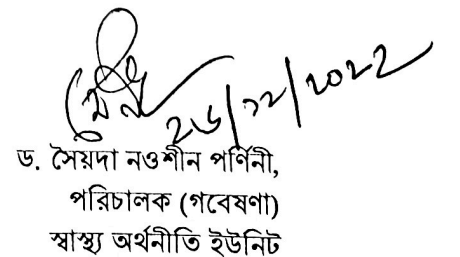 ২৬/১২/২০২২
ড. সৈয়দা নওশীন পর্ণিনী,
পরিচালক (গবেষণা)
স্বাস্থ্য অর্থনীতি ইউনিট